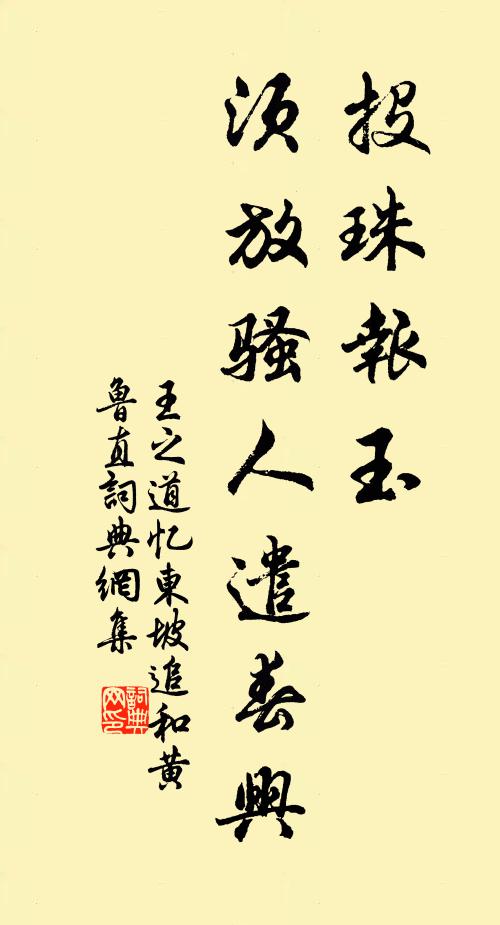 投珠報玉
須放騷人遣春興
王之道忆東坡追和黄
魯直詞典網集
詞典网印